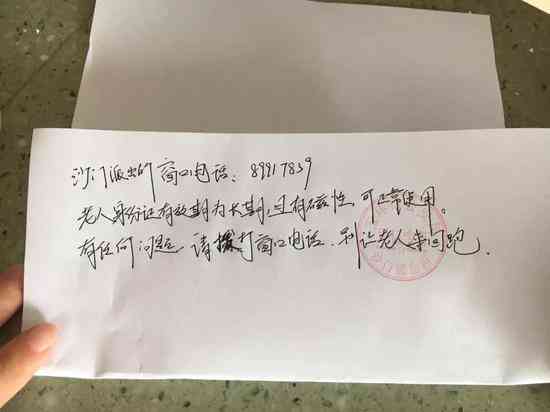 沙门派出所窗口电话：89917839
老人身份证有效期为长期，还有磁性，可正常使用
有任何问题，请拨打窗口电话，别让老人来回跑.